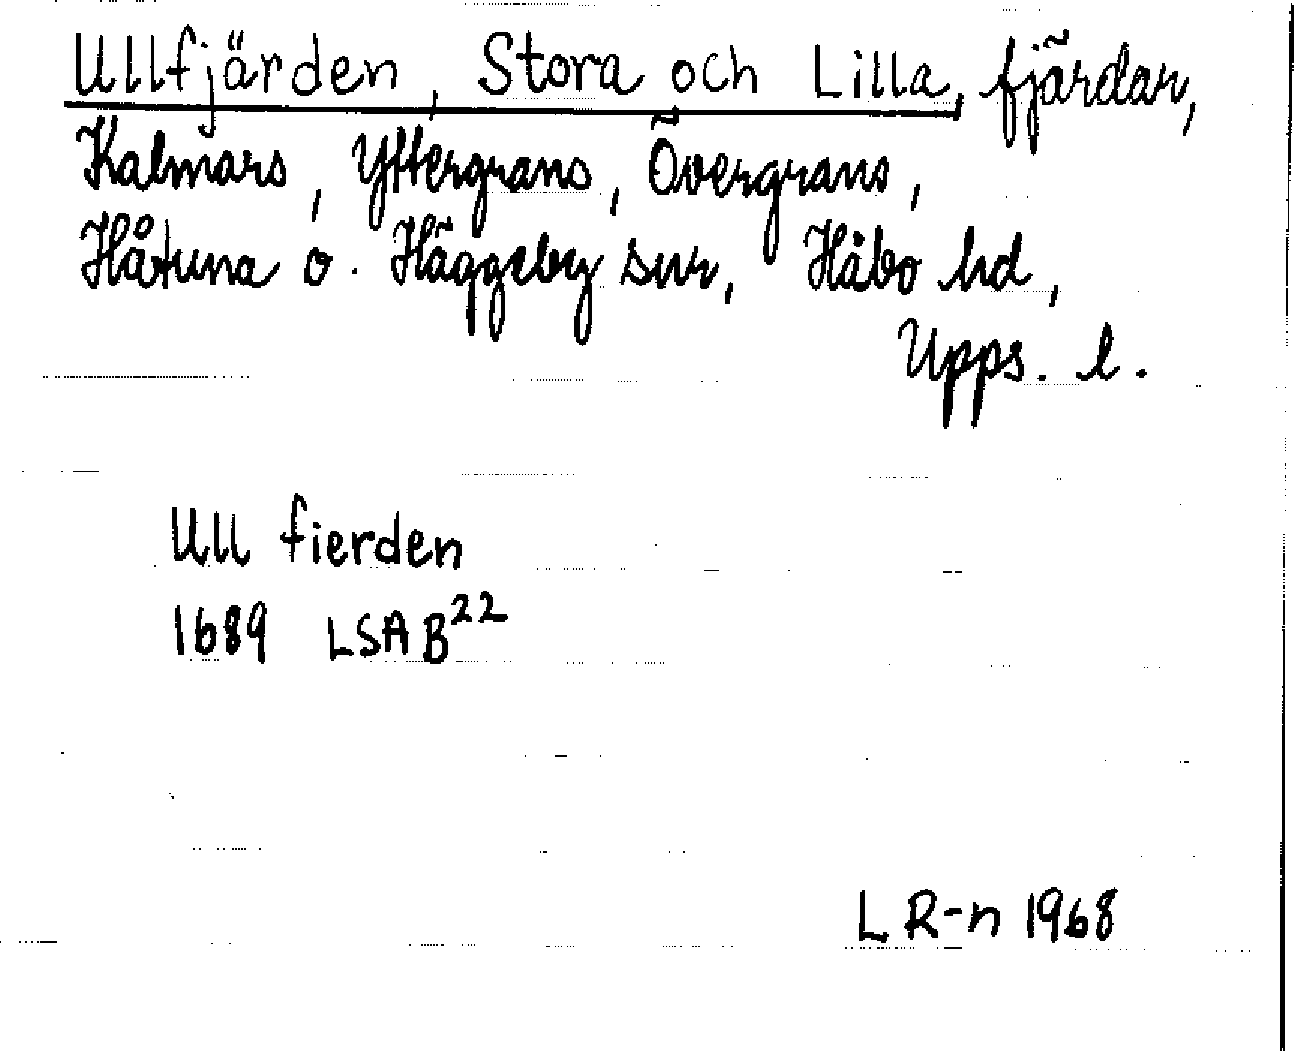 Ullfjärden, Stora och Lilla, fjärdar,
Kalmars, Yttergrans, Övergrans,
Håtuna o. Häggeby snr, Håbo hd,
Upps. l.
Ull fierden
1689 LSA B22
L R-n 1968